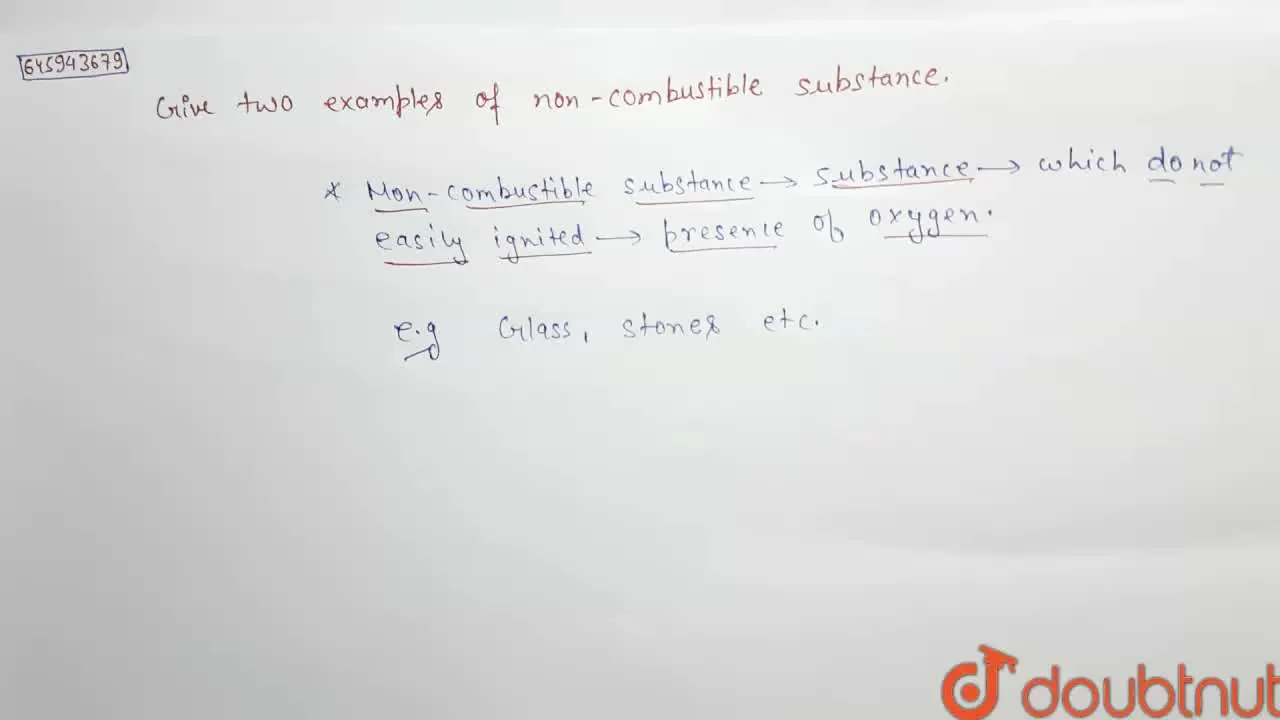 645943679
Give two examples of non-combustible substance.
* Non-combustible substance → substance → which do not
easily ignited → presence of oxygen.
e.g Glass, stones etc.
doubtnut